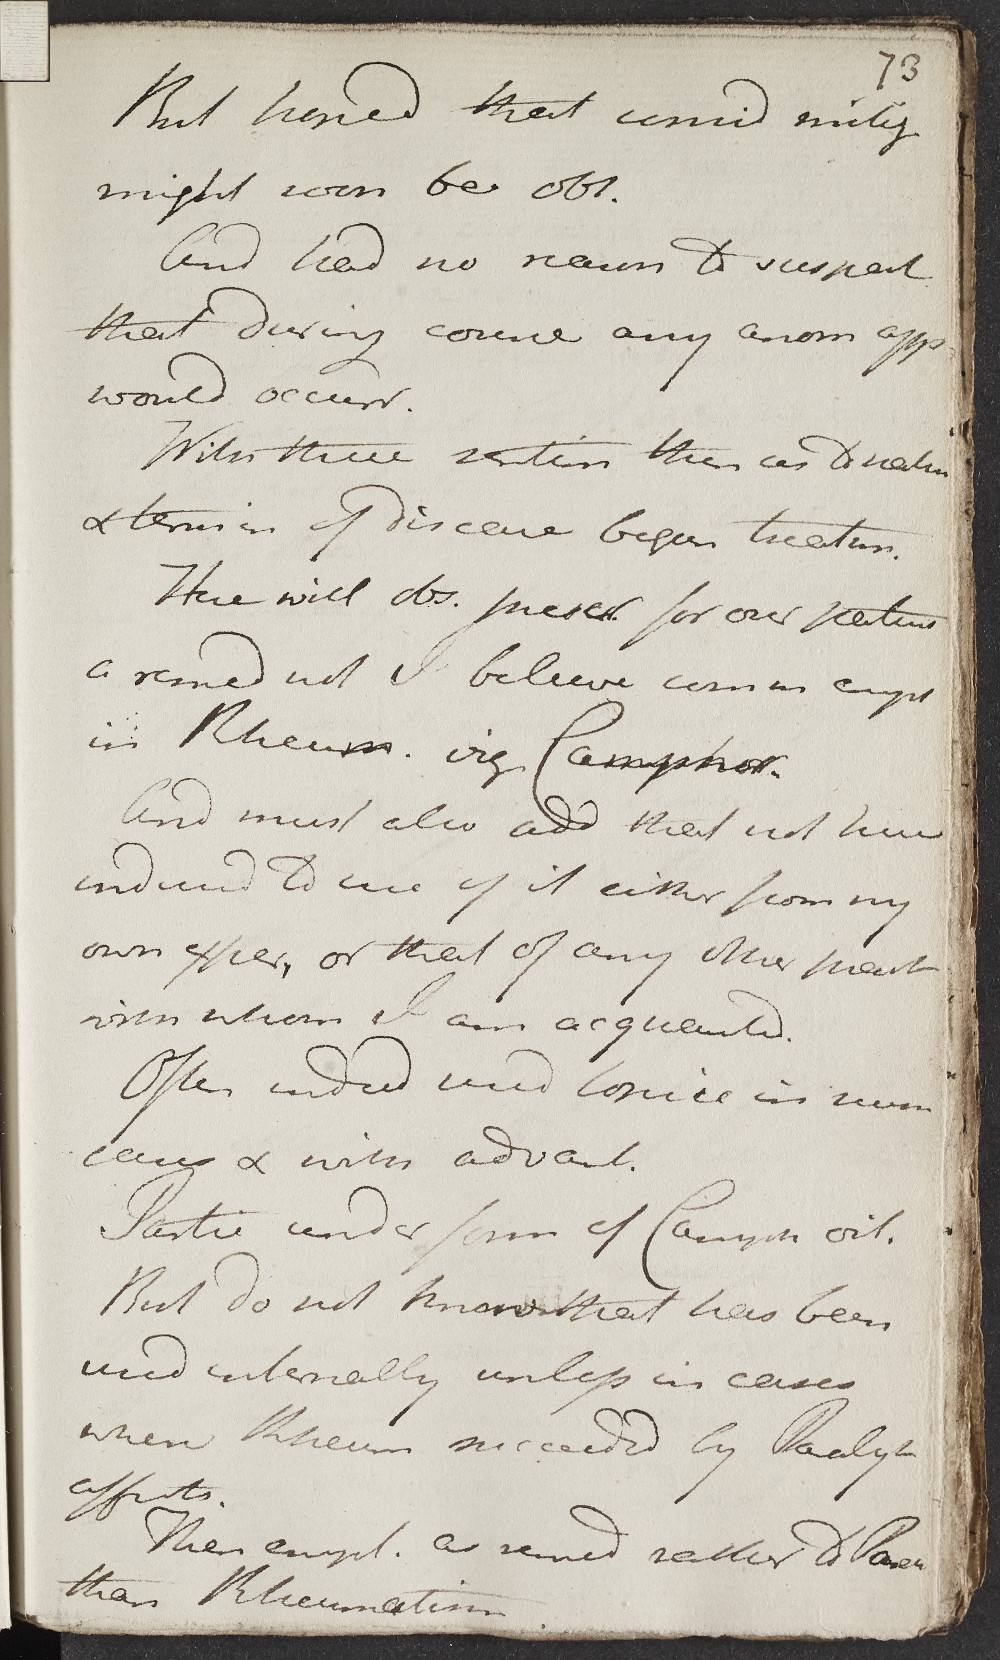 73
But hoped that consid mitig
might soon be obt.
And had no reason to suspect
that during course any anom app
would occurr.
With these sentim then as to natur
& termin of disease began treatm.
Here will obs. prescr. for our patient
a remed not I believe comm empl
in Rheum. viz Camphor.
And must also add that not here
induced to use of it either from my
own exper, or that of any other pract
with whom I am acquainted.
Often indeed used topice in num
cases & with advant.
Partic under form of Camph oil.
But do not know that has been
used internally unless in cases
where Rheum succeeded by Paralyt
affects.
Then empl. as remed rather to
than Rheumatism